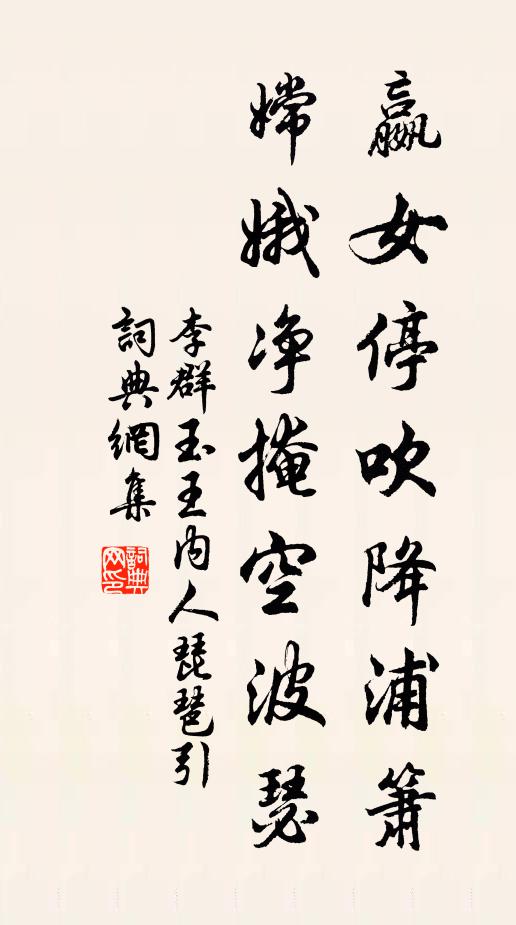 嬴女停吹降浦簫
嫦娥净掩空波瑟
李群玉王内人琵琶引
詞典網集
詞典网印